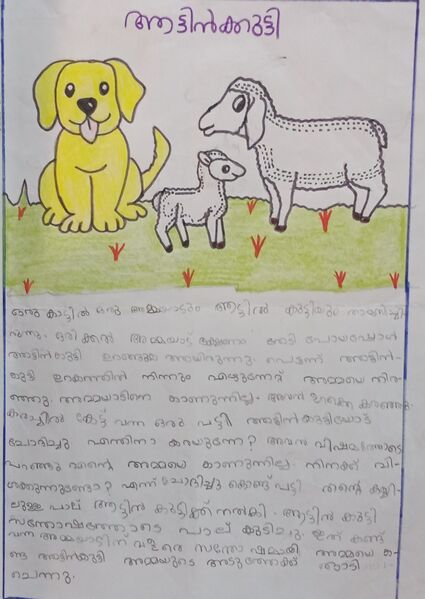 ആട്ടിൻക്കുട്ടി
ഒരു കാട്ടിൽ ഒരു അമ്മയാടും ആട്ടിൻ കുട്ടിയും താമസിച്ചി
രുന്നു. ഒരിക്കൽ അമ്മയാട് ഭക്ഷണം തേടി പോയപ്പോൾ
ആട്ടിൻകുട്ടി ഉറങ്ങുക ആയിരുന്നു. പെട്ടെന്ന് ആട്ടിൻ-
കുട്ടി ഉറക്കത്തിൽ നിന്നും എഴുന്നേറ്റ് അമ്മയെ തിര-
ഞ്ഞു. അമ്മയാടിനെ കാണുന്നില്ല. അവൻ ഉറക്കെ കരഞ്ഞു.
കരച്ചിൽ കേട്ട് വന്ന ഒരു പട്ടി ആട്ടിൻകുട്ടിയോട്
ചോദിച്ചു എന്തിനാ കരയുന്നേ? അവൻ വിഷമത്തോടെ
പറഞ്ഞു എന്റെ അമ്മയെ കാണുന്നില്ല. നിനക്ക് വി-
ശക്കുന്നുണ്ടോ? എന്ന് ചോദിച്ചു കൊണ്ട് പട്ടി തന്റെ കയ്യി-
ലുള്ള പാല് ആട്ടിൻ കുട്ടിക്ക് നൽകി. ആട്ടിൻ കുട്ടി
സന്തോഷത്തോടെ പാല് കുടിച്ചു. ഇത് കണ്ട്
വന്ന അമ്മയാട്ടിന് വളരെ സന്തോഷമായി അമ്മയെ ക-
ണ്ട ആട്ടിൻകുട്ടി അമ്മയുടെ അടുത്തേക്ക് ഓടി
ചെന്നു.